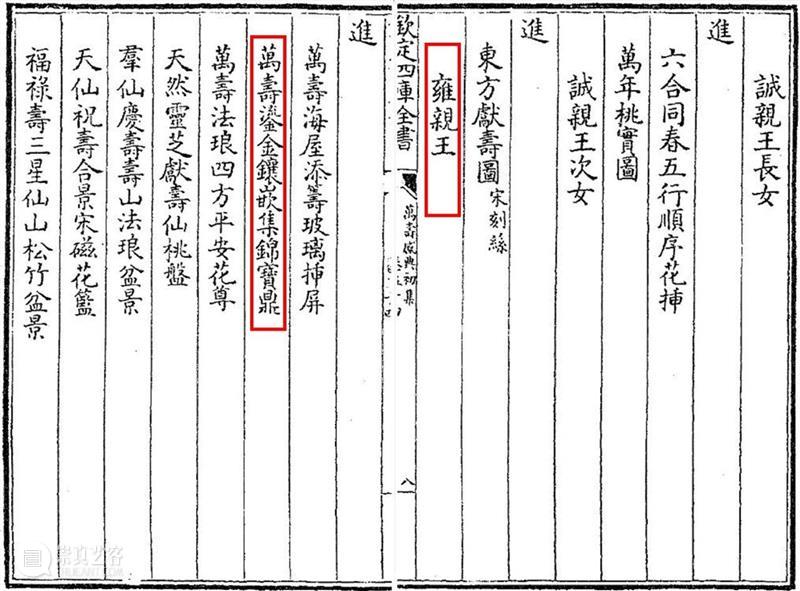 誠親王長女
進
六合同春五行順序花揷
萬年桃實圖
誠親王次女
進
東方獻壽圖 宋刻絲
雍親王
欽定四庫全書
萬壽盛典初集
八
進
萬壽海屋添籌玻璃揷屏
萬壽鎏金鑲嵌集錦寶鼎
萬壽法琅四方平安花尊
天然靈芝獻壽仙桃盤
羣仙慶壽壽山法琅盆景
天仙祝壽合景宋磁花籃
福祿壽三星仙山松竹盆景